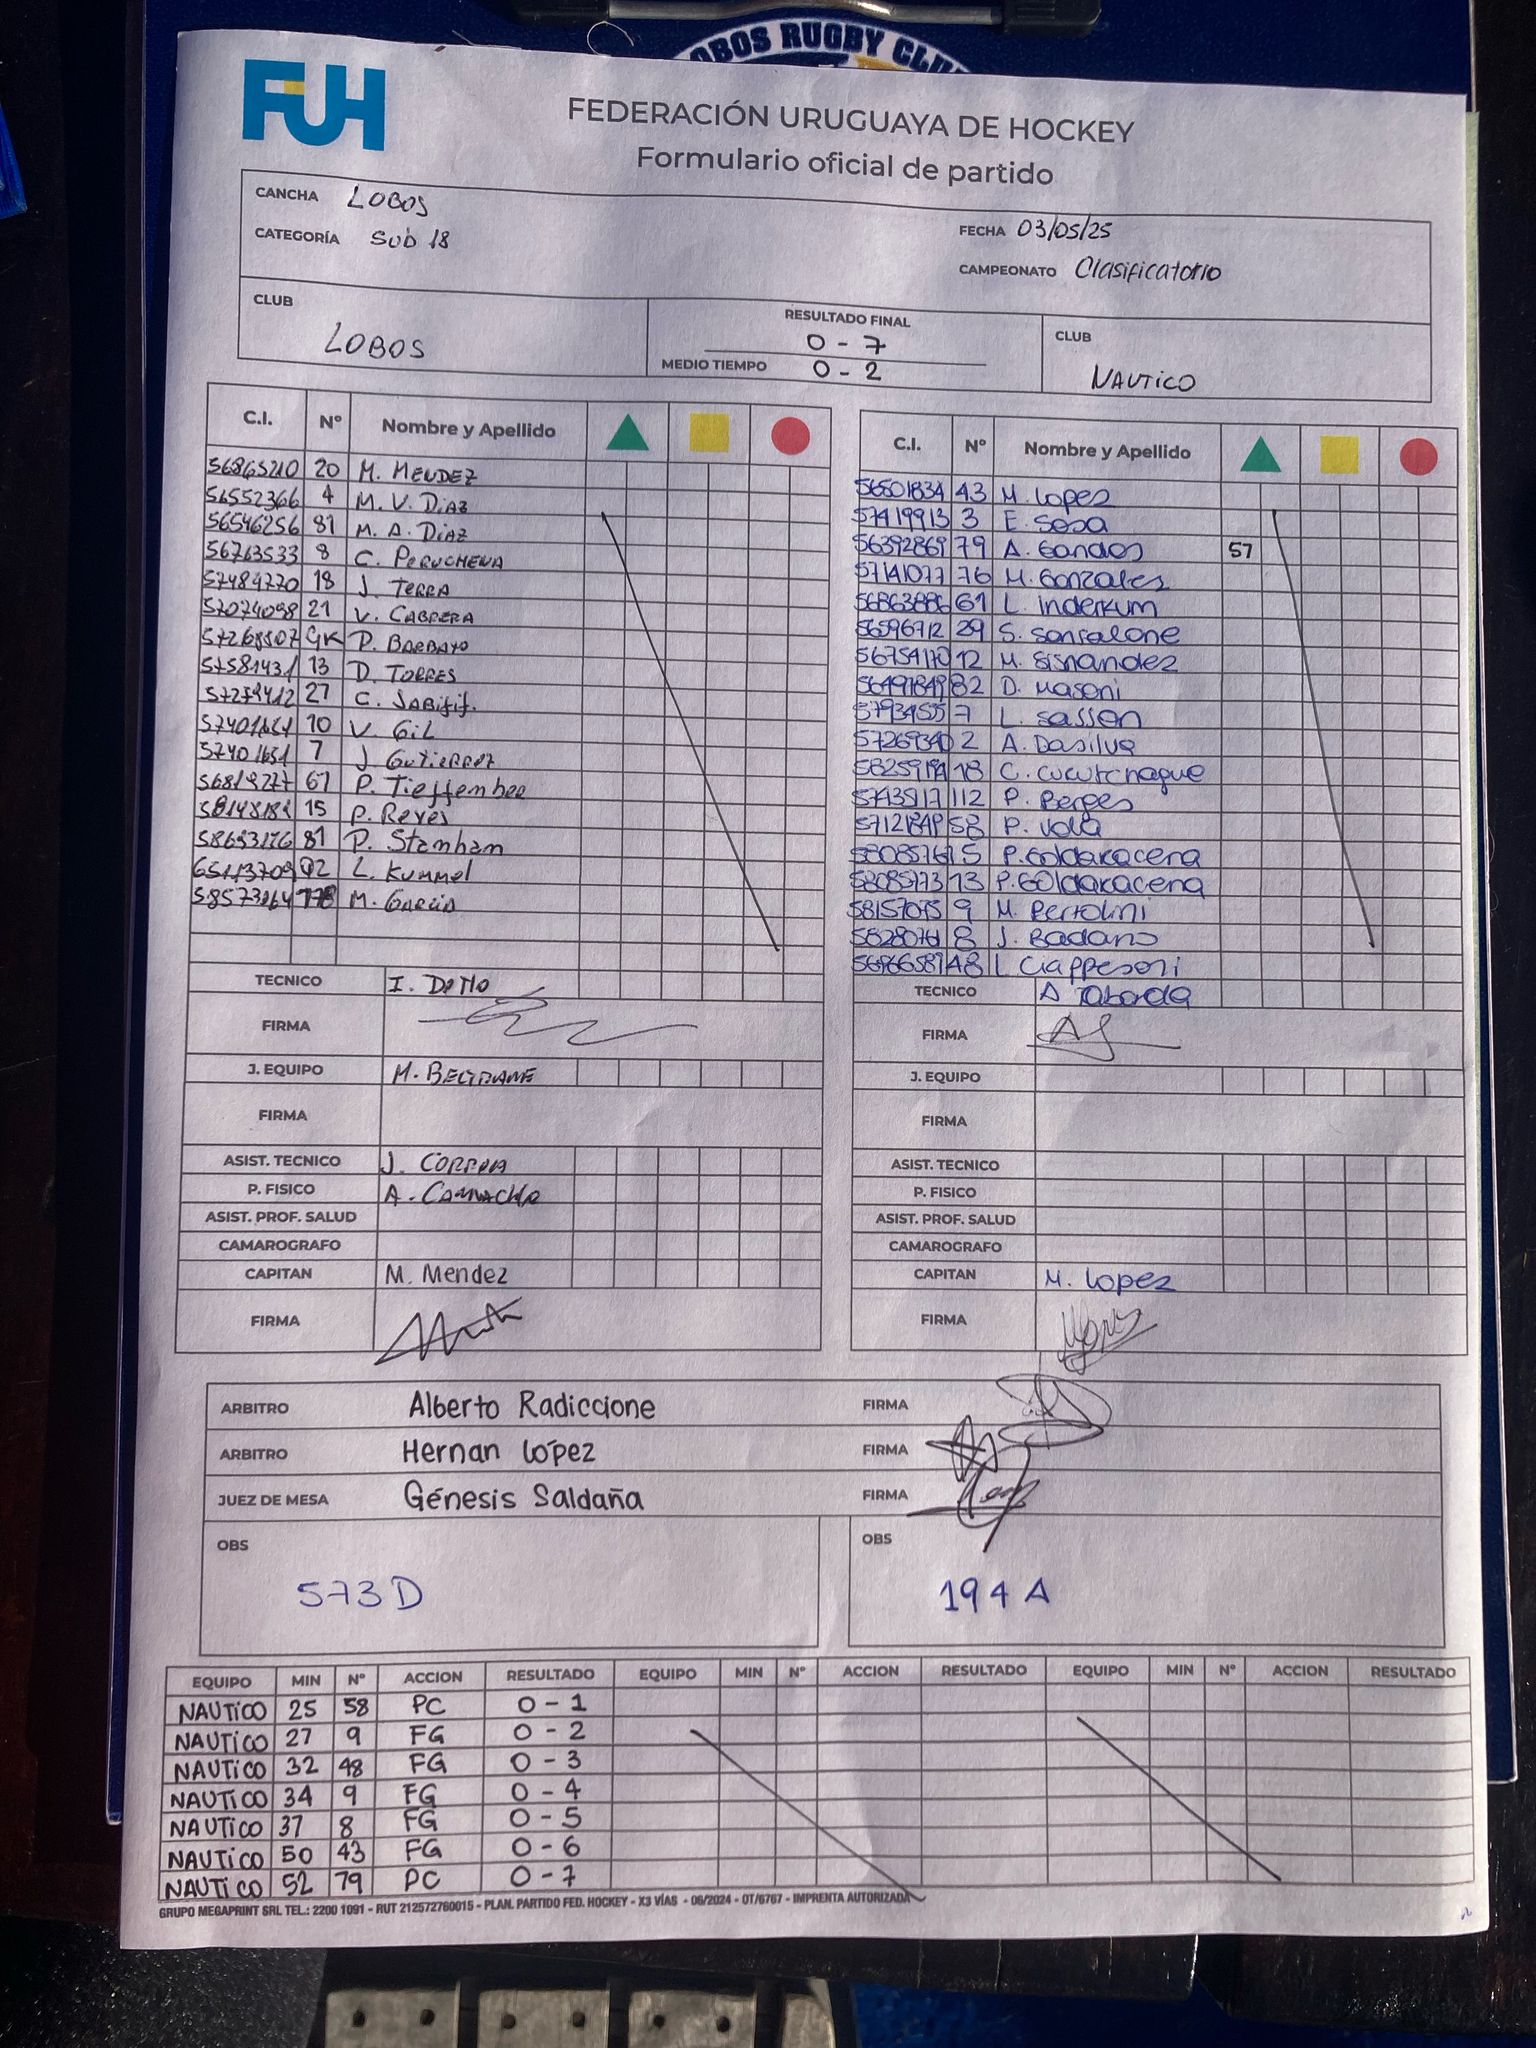 LOBOS RUGBY CLUB
FUH
FEDERACIÓN URUGUAYA DE HOCKEY
Formulario oficial de partido
CANCHA LOBOS
CATEGORÍA Sub 18
FECHA 03/05/25
CAMPEONATO Clasificatorio
CLUB LOBOS
RESULTADO FINAL 0 - 7
MEDIO TIEMPO 0 - 2
CLUB NAUTICO
C.I. Nº Nombre y Apellido
56865210 20 M. MENDEZ
56552366 4 M. V. DIAZ
56546256 81 M. A. DIAZ
56763533 8 C. PERUCHENA
57484770 18 J. TERRA
57074098 21 V. CABRERA
GK P. BARBATO
57581431 13 D. TORRES
27 C.
10 V. GIL
57401651 7 J. GUTIERREZ
56819277 61 P.
15 P. Reyes
58693176 81 P. Stanham
L. Kummel
M. GARCIA
TECNICO I.
FIRMA
J. EQUIPO M. BELTRAME
FIRMA
ASIST. TECNICO J. CORREA
P. FISICO A. CAMACHO
ASIST. PROF. SALUD
CAMAROGRAFO
CAPITAN M. Mendez
FIRMA
C.I. Nº Nombre y Apellido
56501834 43 M. Lopez
57419913 3 E. Sosa
56392869 79 A. Gandos 57
57141077 76 M. Gonzales
56863886 61 L. inderkum
56596712 29 S. Sanralone
56754170 12 M. Sisnandez
56491849 82 D. Masoni
57934555 7 L. Sassen
57269340 2 A. Dasilva
18 C. Cucutchague
P. Berges
57121849 58 P. Vola
58085761 5 P. Goldaracena
58085773 13 P. Goldaracena
58157095 9 M. Bertolini
58280761 8 J. Badano
48 L Ciappesoni
TECNICO A Taborda
FIRMA
J. EQUIPO
FIRMA
ASIST. TECNICO
P. FISICO
ASIST. PROF. SALUD
CAMAROGRAFO
CAPITAN M. Lopez
FIRMA
ARBITRO Alberto Radiccione FIRMA
ARBITRO Hernan López FIRMA
JUEZ DE MESA Génesis Saldaña FIRMA
OBS 573 D
OBS 194 A
EQUIPO MIN Nº ACCION RESULTADO EQUIPO MIN Nº ACCION RESULTADO EQUIPO MIN Nº ACCION RESULTADO
NAUTICO 25 58 PC 0 - 1
NAUTICO 27 9 FG 0 - 2
NAUTICO 32 48 FG 0 - 3
NAUTICO 34 9 FG 0 - 4
NAUTICO 37 8 FG 0 - 5
NAUTICO 50 43 FG 0 - 6
NAUTICO 52 79 PC 0 - 7
GRUPO MEGAPRINT SRL TEL.: 2200 1091 - RUT 212572760015 - PLAN. PARTIDO FED. HOCKEY - X3 VÍAS - 06/2024 - OT/6767 - IMPRENTA AUTORIZADA